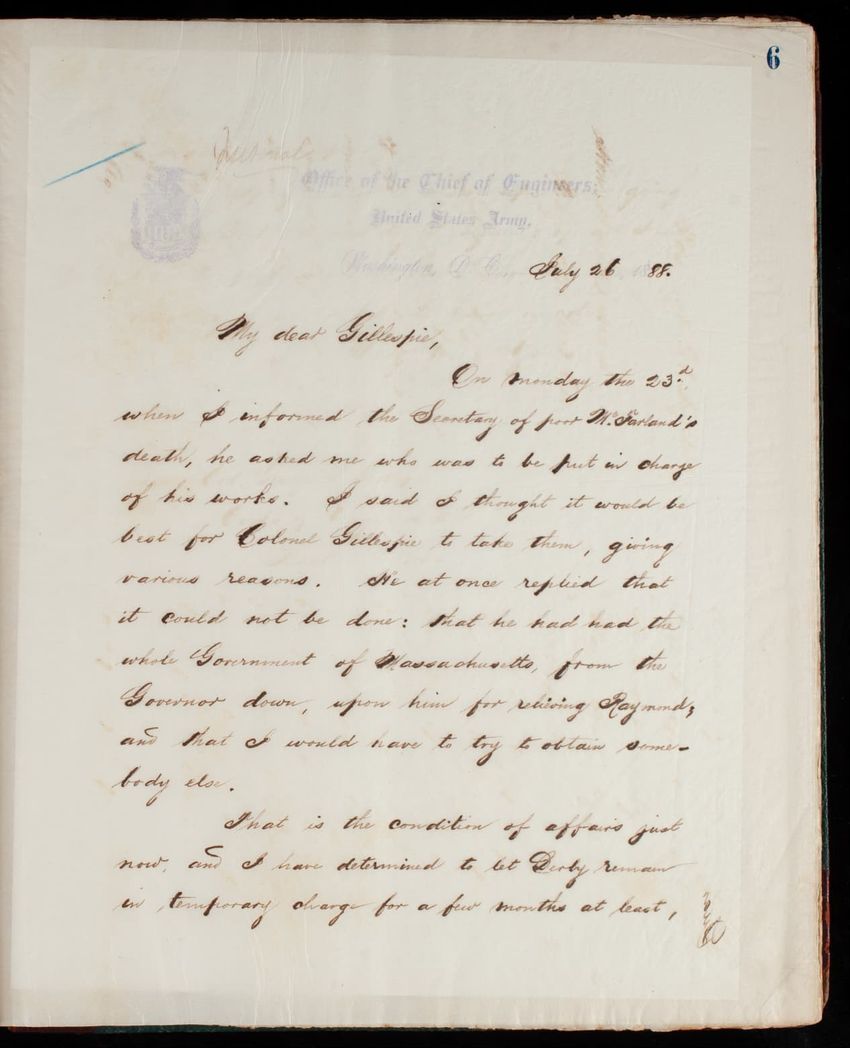 6
Office of the Chief of Engineers,
United States Army,
Washington, D. C. July 26 1888.
My dear Gillespie,
On monday the 23d.
when I informed the Secretary of poor McFarland's
death, he asked me who was to be put in charge
of his works. I said I thought it would be
best for Colonel Gillespie to take them, giving
various reasons. He at once replied that
it could not be done: that he had had the
whole Government of Massachusetts, from the
Governor down, upon him for relieving Raymond;
and that I would have to try to obtain some-
body else.
That is the condition of affairs just
now, and I have determined to let Derby remain
in temporary charge for a few months at least,